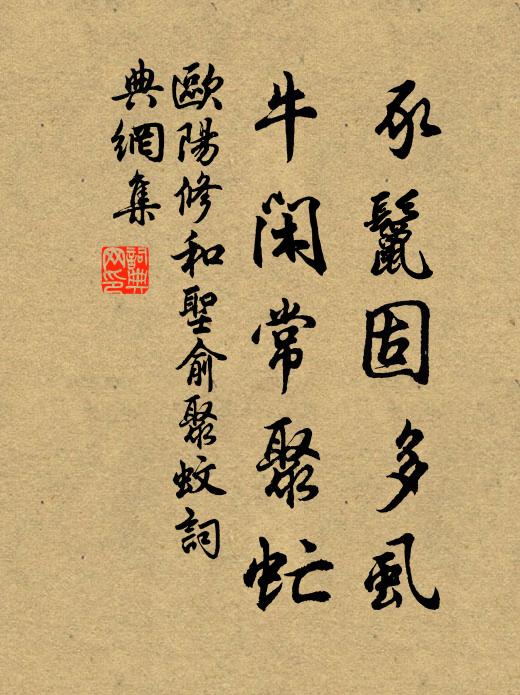 豕鬣固多虱
牛閑常聚虻
歐陽修和聖俞聚蚊詞
典網集
詞典
网印